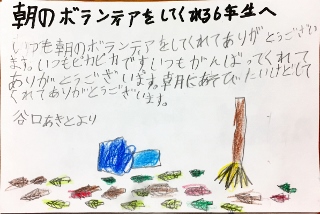 朝のボランテアをしてくれる6年生へ
いつも朝のボランテアをしてくれてありがとうござい
ます。いつもピカピカです。いつもがんばってくれて
ありがとうございます。朝にあそびたいけどして
くれてありがとうございます。
谷口あきとより